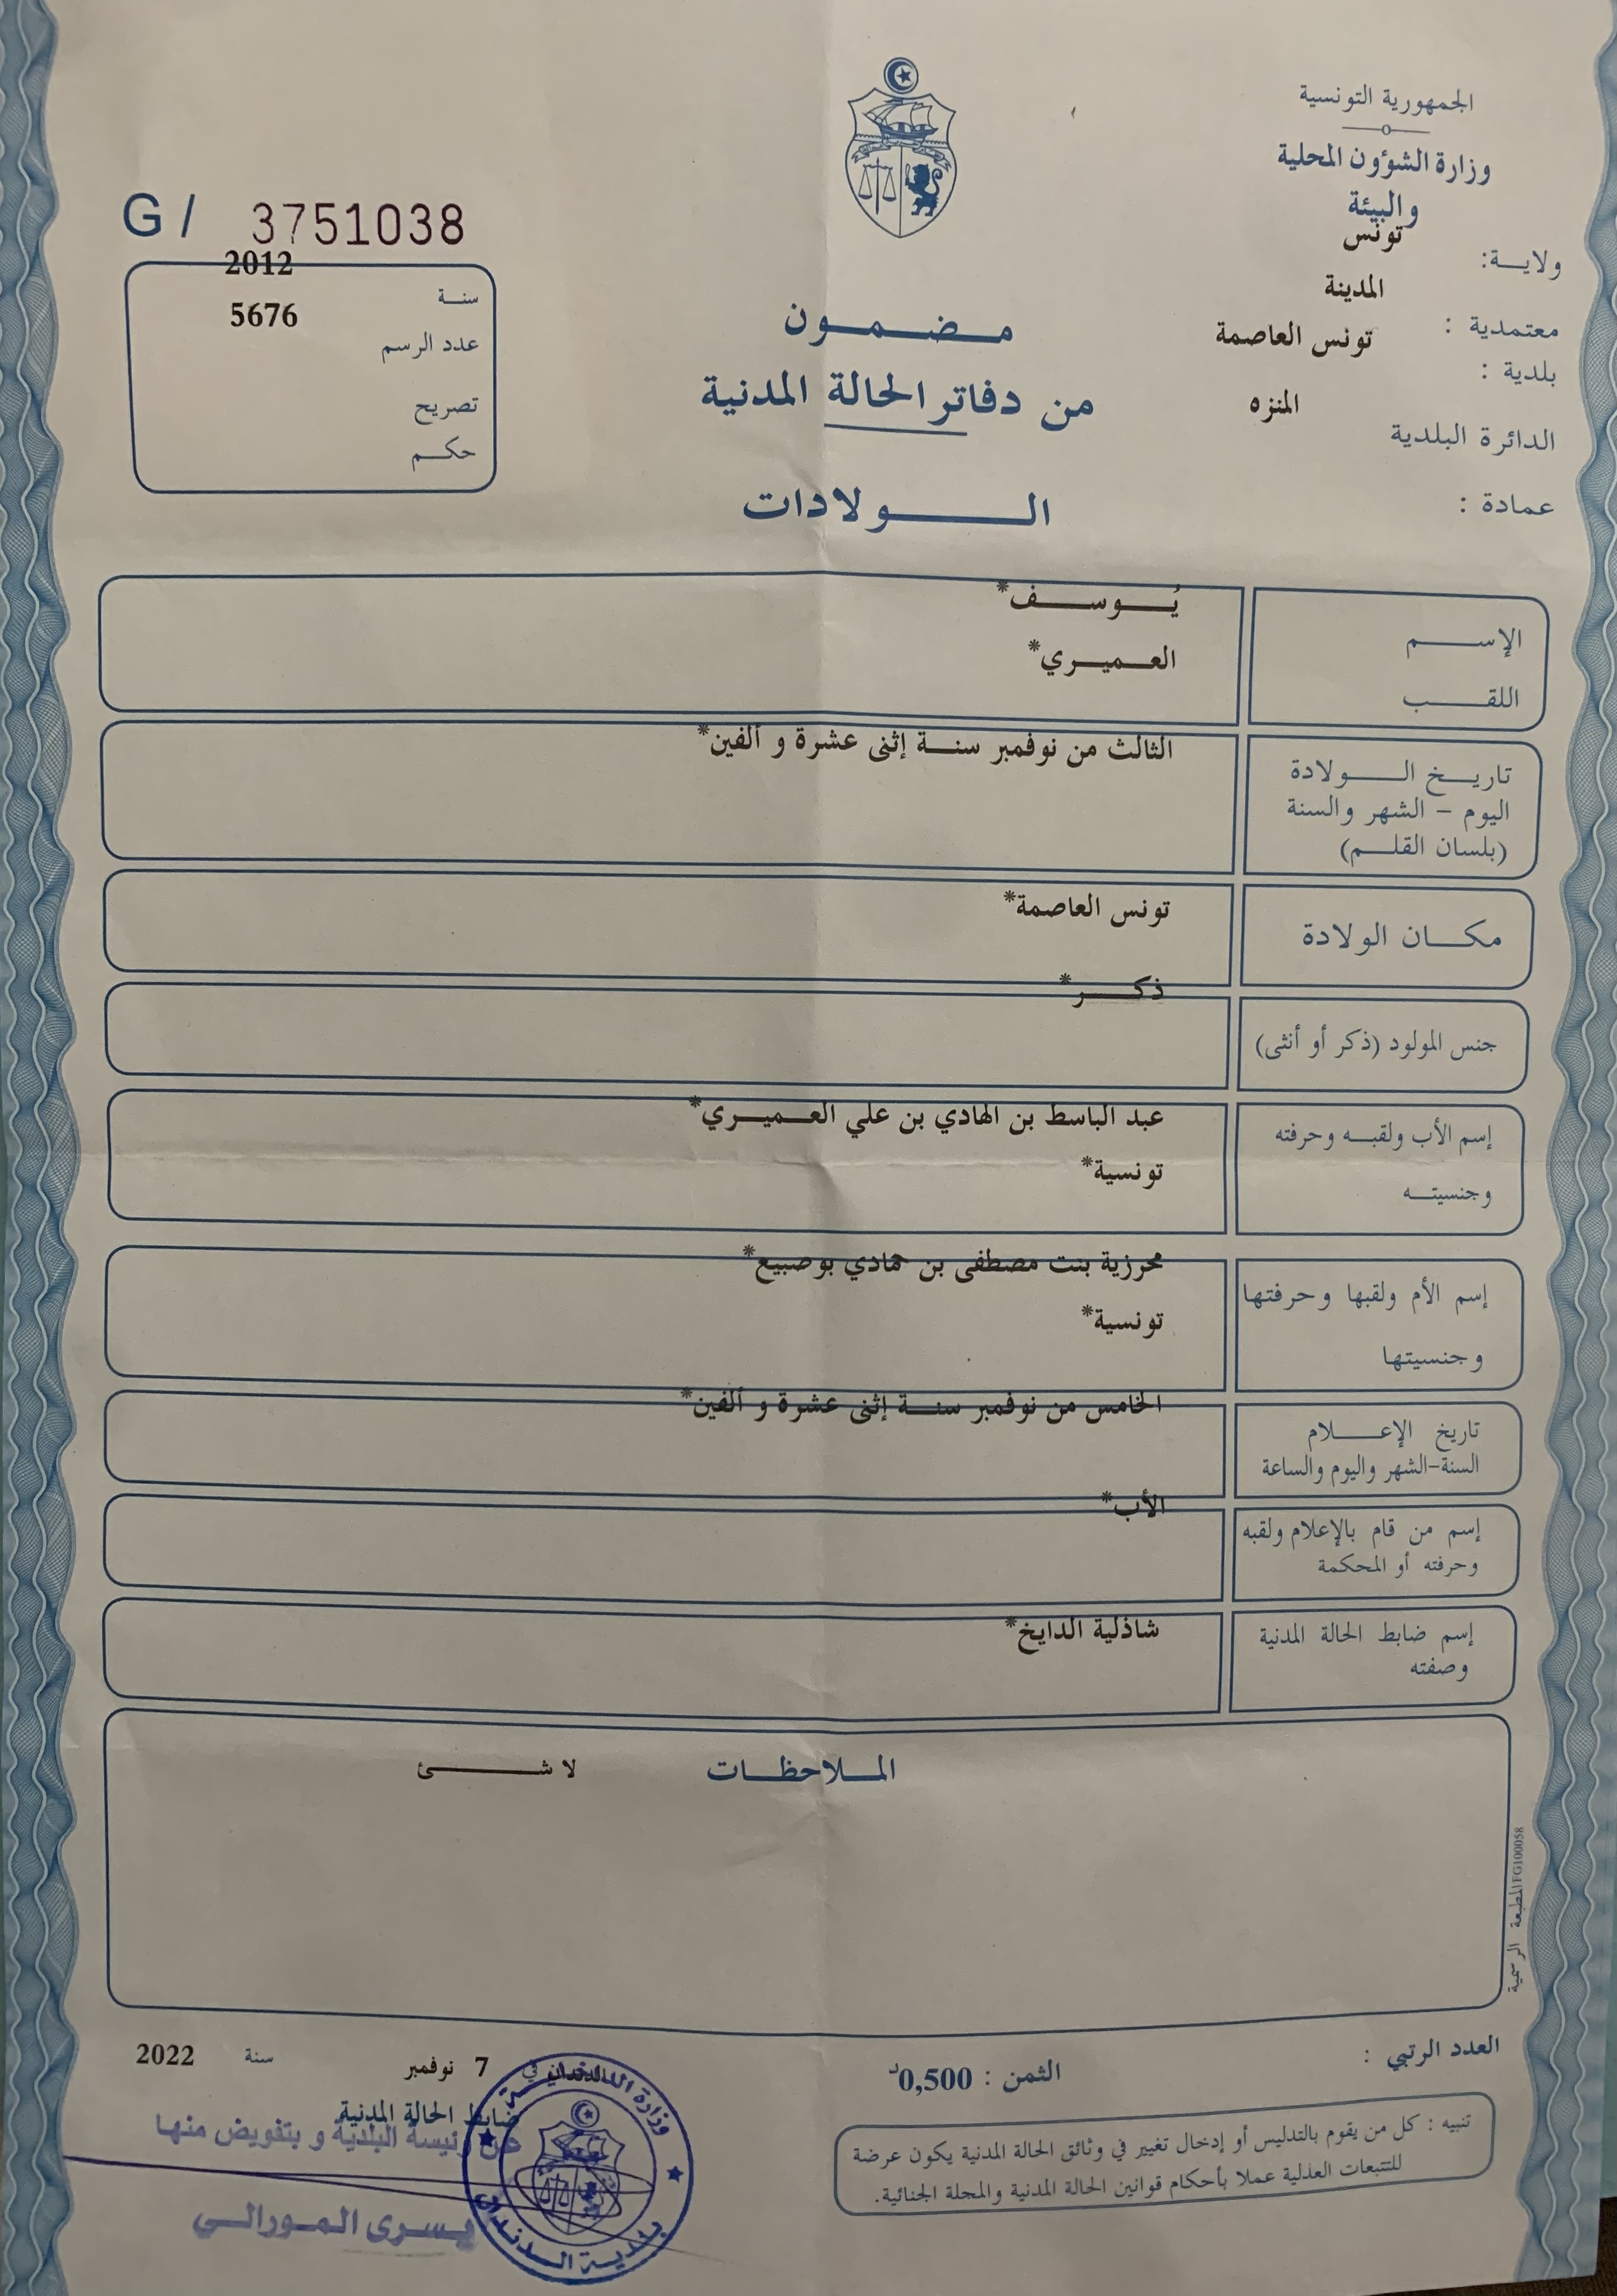 الجمهورية التونسية
وزارة الشؤون المحلية
والبيئة
ولايــة: تونس
معتمدية : المدينة
بلدية : تونس العاصمة
الدائرة البلدية المنزه
عمادة :
مـضـمـون
من دفاتر الحالة المدنية
الــولادات
G / 3751038
سنـة 2012
عدد الرسم 5676
تصريح
حكـم
الإســم يُـوسـف*
اللقـب العـميـري*
تاريـخ الــولادة الثالث من نوفمبر سنـة إثنى عشرة و ألفين*
اليوم – الشهر والسنة
(بلسان القلـم)
مكـان الولادة تونس العاصمة*
جنس المولود (ذكر أو أنثى) ذكـر*
إسم الأب ولقبـه وحرفته عبد الباسط بن الهادي بن علي العـميـري*
وجنسيتـه تونسية*
إسم الأم ولقبها وحرفتها محرزية بنت مصطفى بن حمادي بوصبيع*
وجنسيتها تونسية*
تاريخ الإعـلام الخامس من نوفمبر سنـة إثنى عشرة و ألفين*
السنة-الشهر واليوم والساعة
إسم من قام بالإعلام ولقبه الأب*
وحرفته أو المحكمة
إسم ضابط الحالة المدنية شاذلية الدايخ*
وصفته
المـلاحظـات لا شـئ
المطبعة الرسمية FG100058
العدد الرتبي :
الثمن : 0,500د
تنبيه : كل من يقوم بالتدليس أو إدخال تغيير في وثائق الحالة المدنية يكون عرضة
للتتبعات العدلية عملا بأحكام قوانين الحالة المدنية والمجلة الجنائية.
الدندان في 7 نوفمبر سنة 2022
ضابط الحالة المدنية
عن رئيسة البلدية و بتفويض منها
يـسـرى الـمـورالـي
وزارة الداخلية
بلدية الدندان